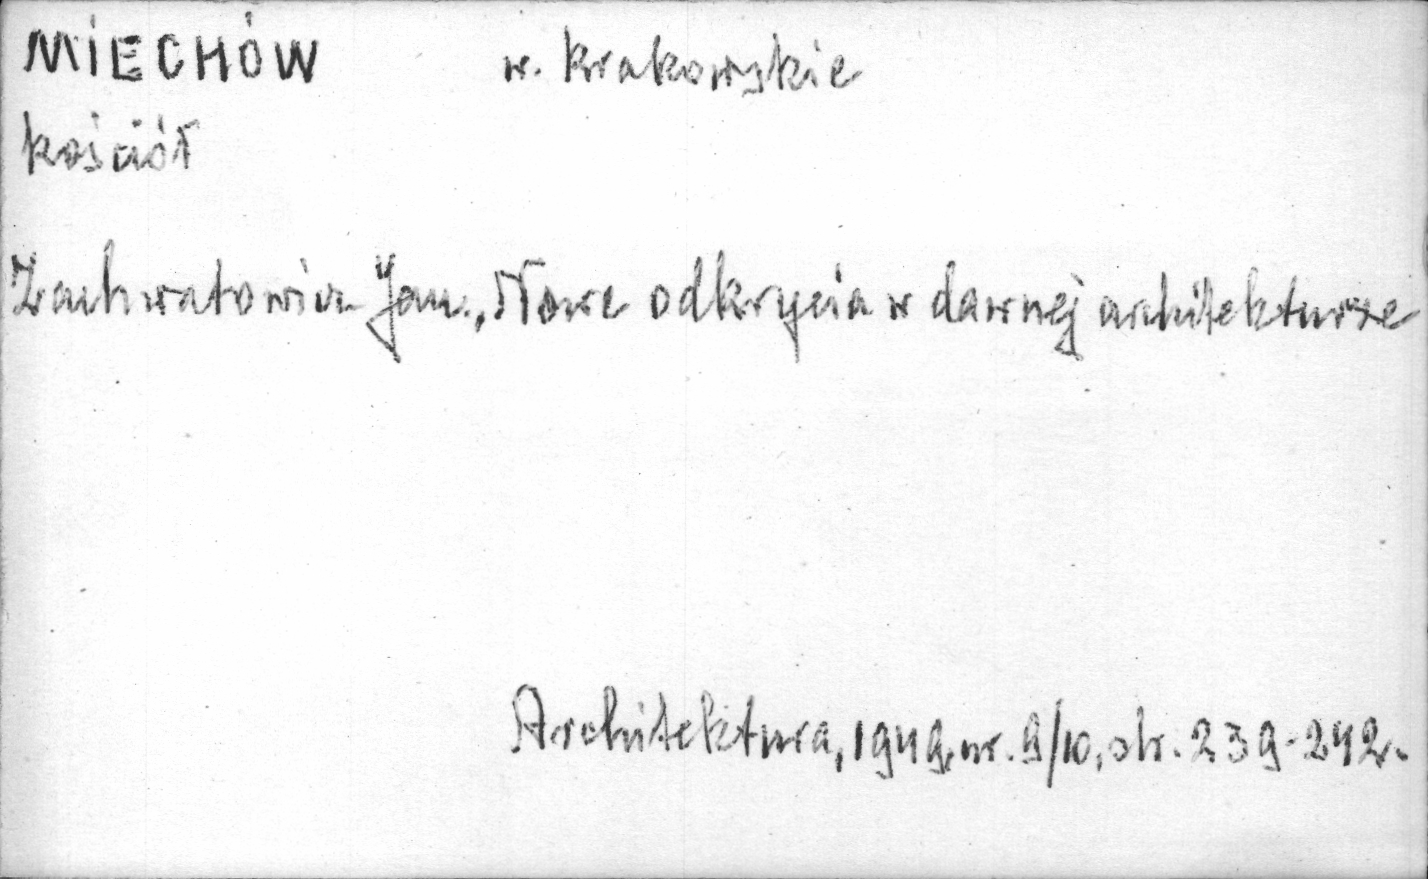 MIECHÓW w. krakowskie
kościół
Zachwatowicz Jan., Nowe odkrycia w dawnej architekturze
Architektura, 1949, nr. 9/10, str. 239-242.